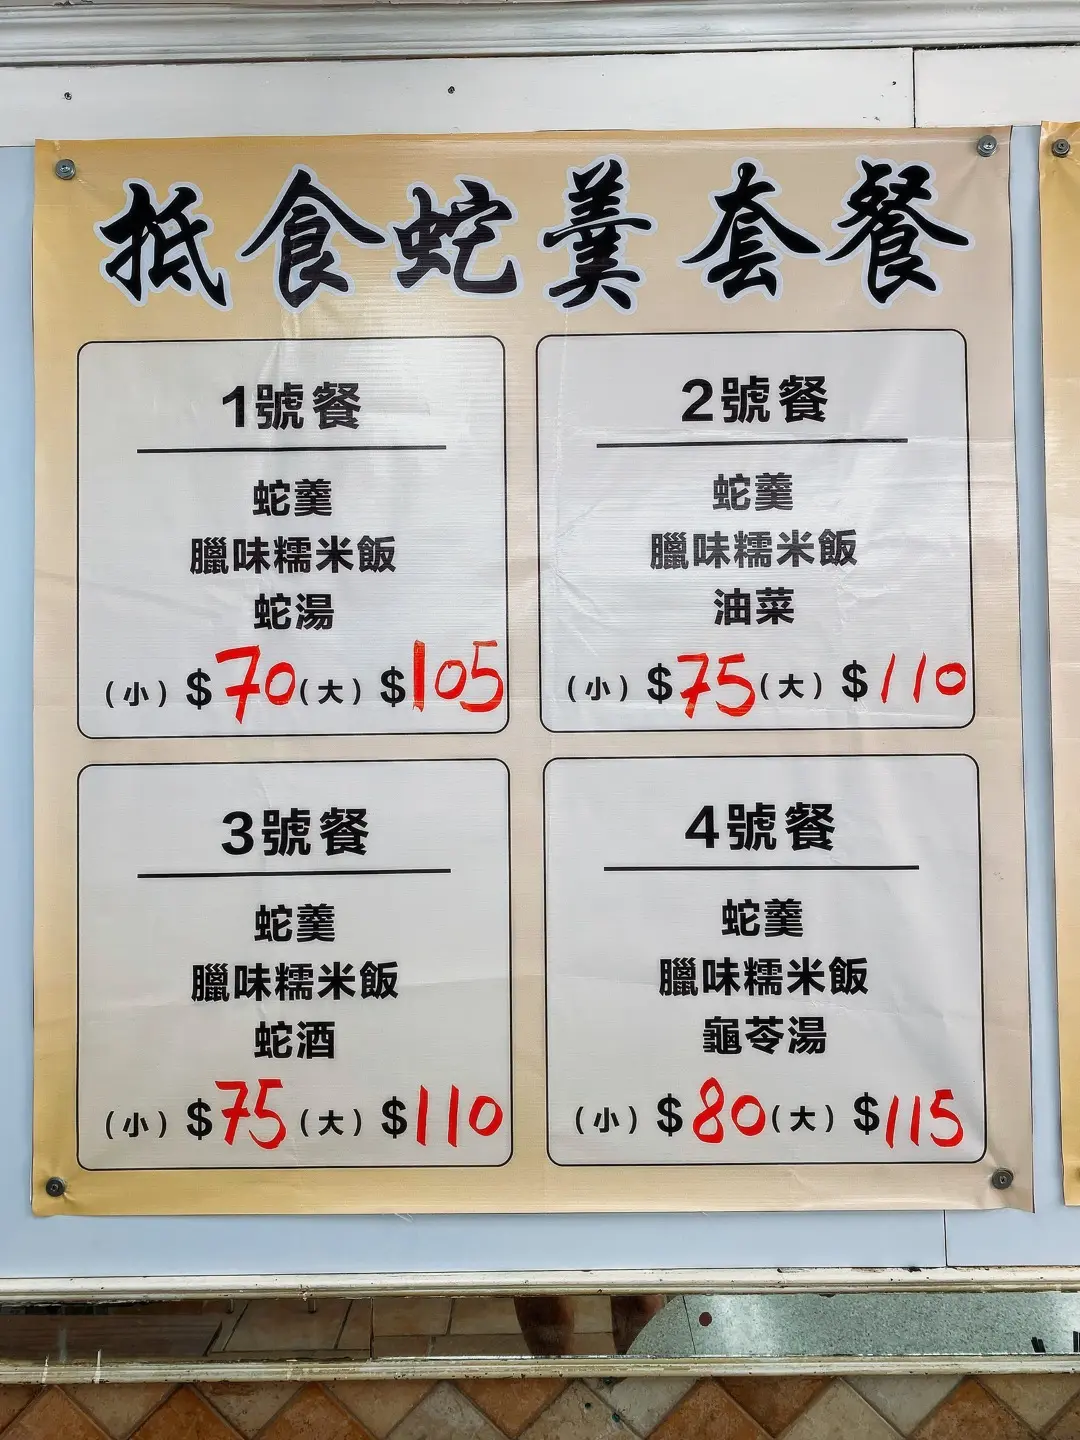 抵食蛇羹套餐
1號餐
蛇羹
臘味糯米飯
蛇湯
（小）$70（大）$105
2號餐
蛇羹
臘味糯米飯
油菜
（小）$75（大）$110
3號餐
蛇羹
臘味糯米飯
蛇酒
（小）$75（大）$110
4號餐
蛇羹
臘味糯米飯
龜苓湯
（小）$80（大）$115